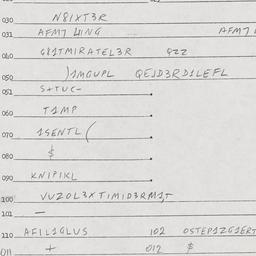 030 N8IXT3R
031 AFM7 LIING AFM7
060 G81TMIRATEL3R QZZ
050 )1MGUPL QEJD3RD1LEFL
051 S+TUC-
060 T1MP
070 1SENTL(
080 $
090 KNIPIKL
100 VUZOL3XTIMID3RM1T
101 —
110 AFIL1GLUS 102 OSTEP1ZG1ERT
011 + 012 $